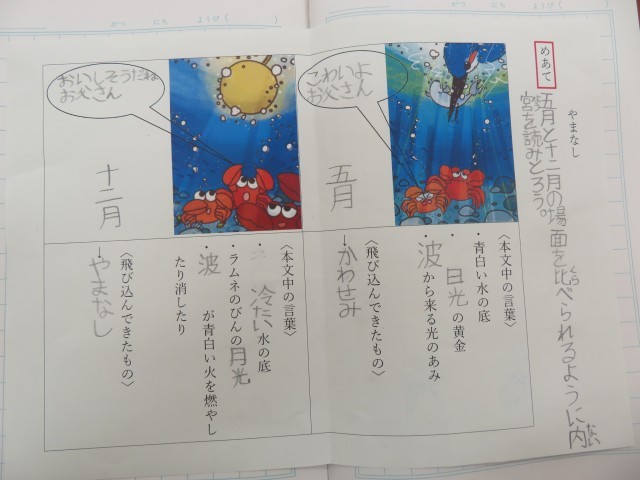 がつ にち ようび( )
がつ にち ようび( )
やまなし
めあて
五月と十二月の場面を比べられるように内
くら
ない
容を読みとろう。
こわいよ
お父さん
五月
〈本文中の言葉〉
・青白い水の底
・日光の黄金
・波から来る光のあみ
〈飛び込んできたもの〉
→かわせみ
おいしそうだね
お父さん
十二月
〈本文中の言葉〉
・冷たい水の底
・ラムネのびんの月光
・波が青白い火を燃やし
たり消したり
〈飛び込んできたもの〉
→やまなし